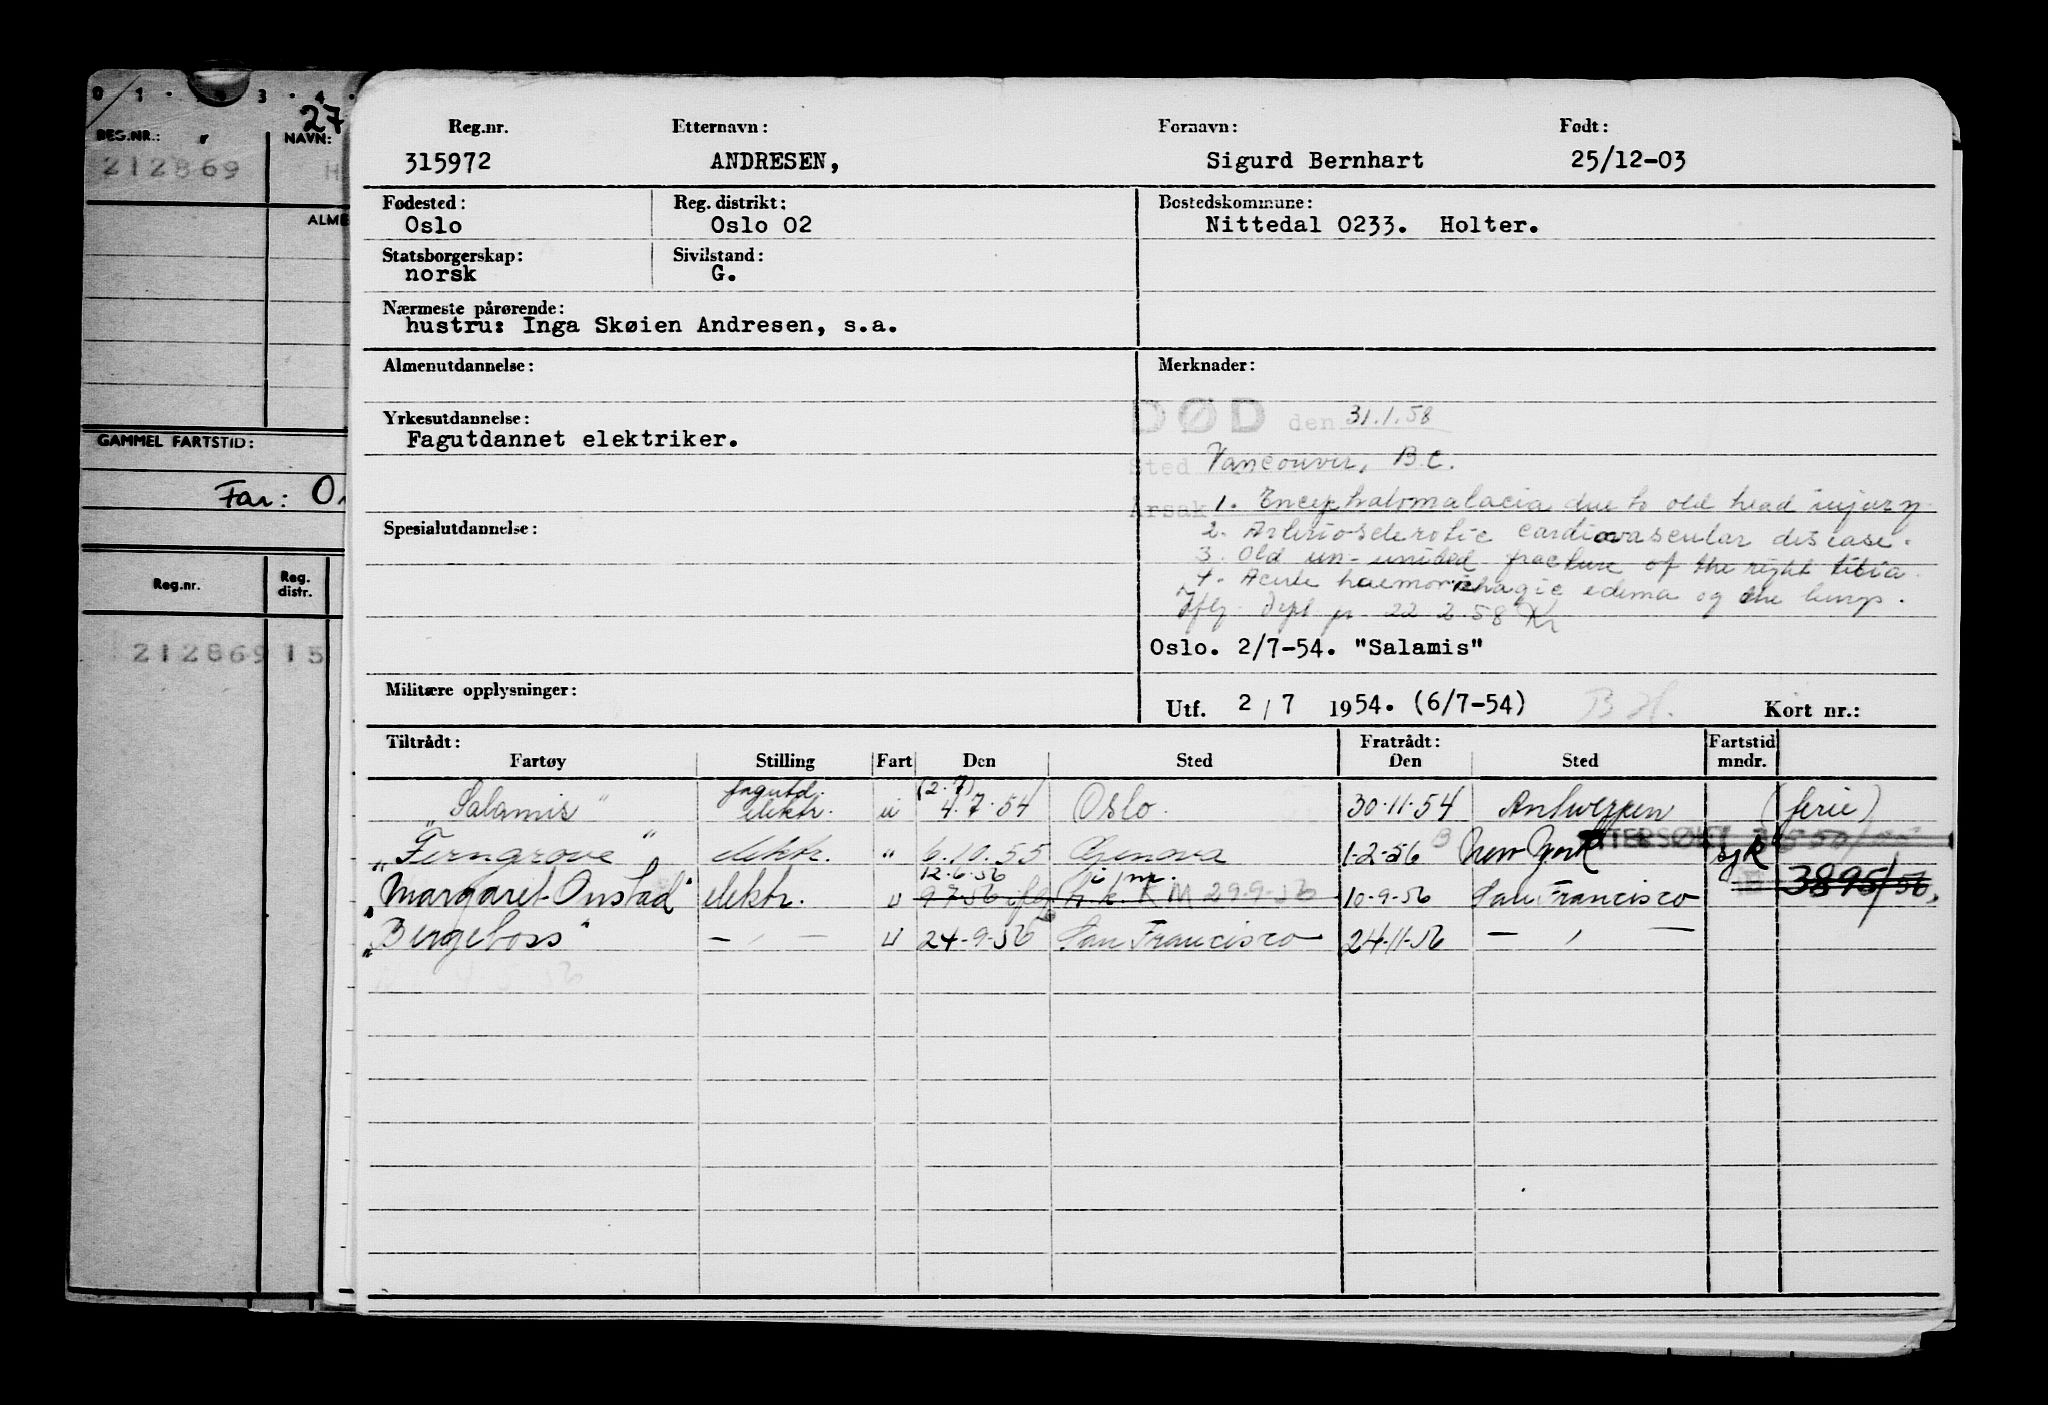 0 1 · 3 · 4 ·
27
REG.NR.: NAVN:
212869 H
ALME
GAMMEL FARTSTID:
Far:
Reg.nr. Reg. distr.
212869 15
Reg.nr. Etternavn: Fornavn: Født:
315972 ANDRESEN, Sigurd Bernhart 25/12-03
Fødested: Reg. distrikt: Bostedskommune:
Oslo Oslo 02 Nittedal 0233. Holter.
Statsborgerskap: Sivilstand:
norsk G.
Nærmeste pårørende:
hustru: Inga Skøien Andresen, s.a.
Almenutdannelse: Merknader:
DØD den 31.1.58
Yrkesutdannelse:
Fagutdannet elektriker.
Sted Vancouver, B.C.
Årsak 1. Encephalomalacia due to old head injury
Spesialutdannelse:
2. Arteriosclerotic cardiovascular disease.
3. Old un-united fracture of the right tibia.
4. Acute haemorrhagic edema og the lungs.
Iflg. 22 2.58 Kr
Oslo. 2/7-54. "Salamis"
Militære opplysninger:
Utf. 2 / 7 1954. (6/7-54) Kort nr.:
Tiltrådt: Fratrådt: Fartstid
Fartøy Stilling Fart Den Sted Den Sted mndr.
"Salamis" fagutd. elektr. u (2.7) 4.7.54 Oslo. 30.11.54 Antwerpen (ferie)
"Ferngrove" elektr. " 6.10.55 Genova 1-2-56 New York sjk
"Margaret Onstad" elektr. u 12.6.56 i nr. 9.7.56 KM 29.9.56 10-9-56 San Francisco 3895/56.
"Bergeboss" — " — u 24-9-56 San Francisco 24-11-56 — " —